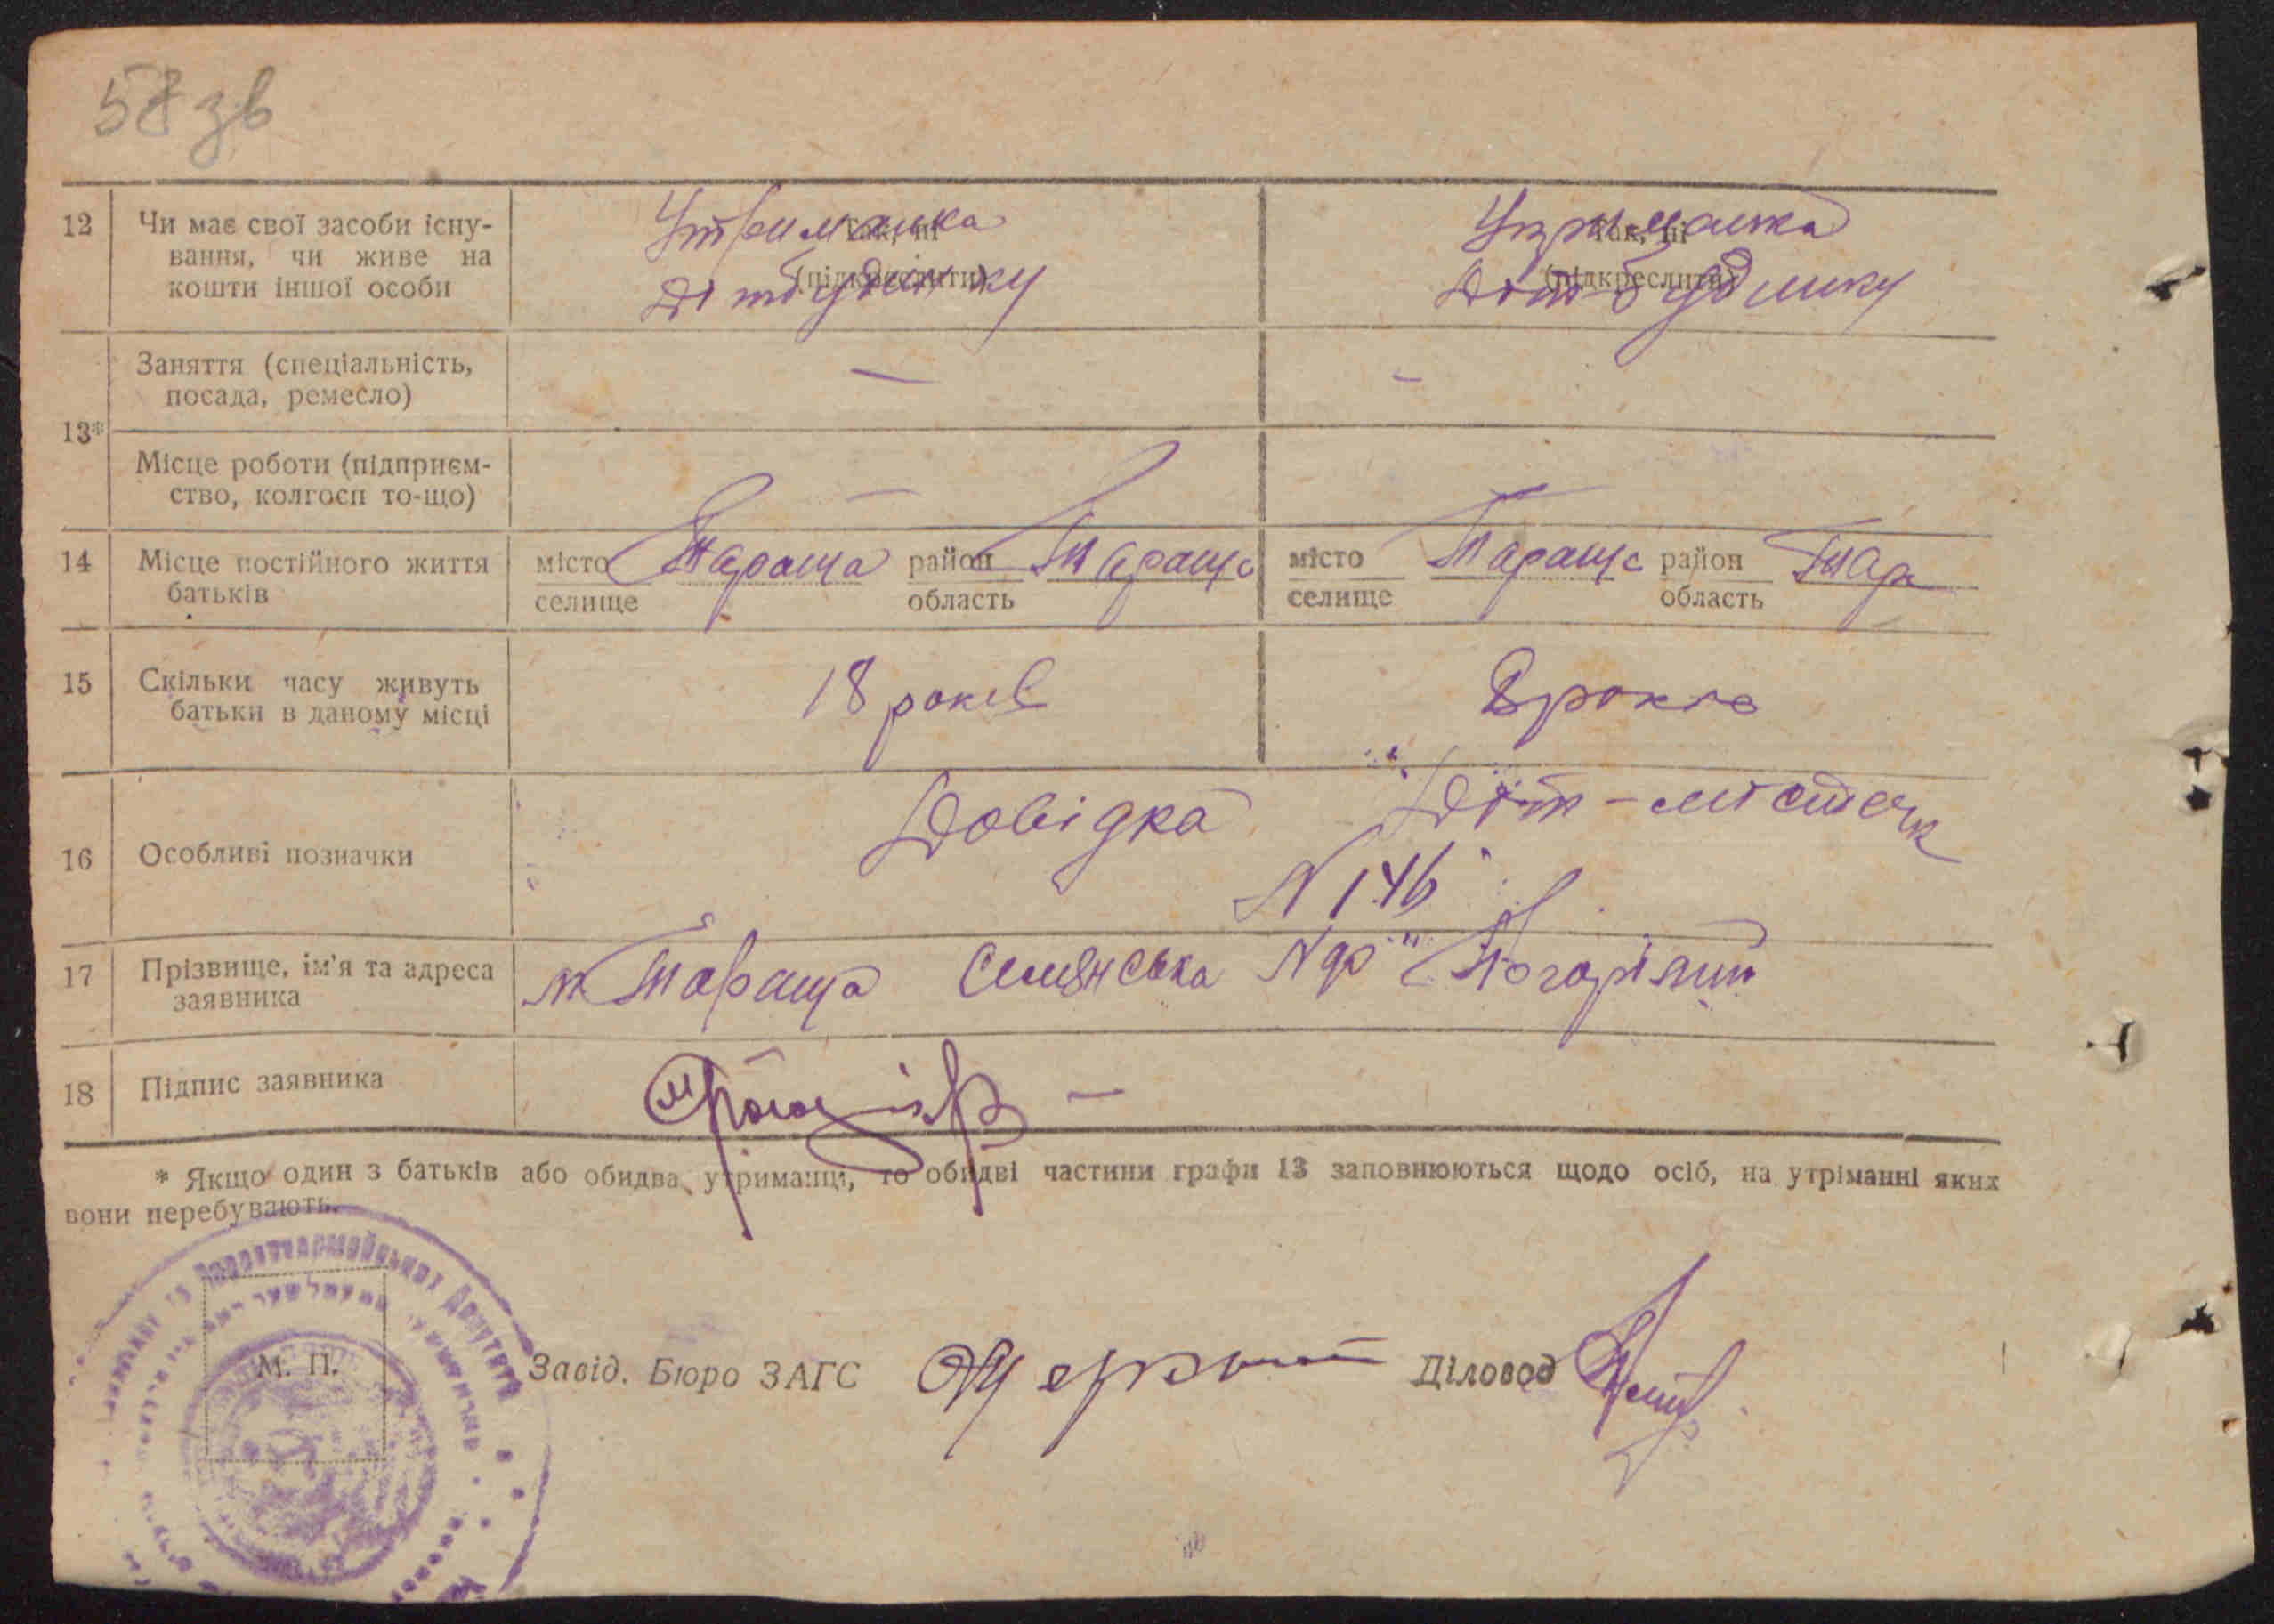 58 зв
12 Чи має свої засоби існу-
вання, чи живе на
кошти іншої особи
Утриманка
Так, ні
(підкреслити)
Дітбудинку
Утриманка
Так, ні
(підкреслити)
Діт-будинку
13* Заняття (спеціальність,
посада, ремесло)
— -
Місце роботи (підприєм-
ство, колгосп то-що)
—
14 Місце постійного життя
батьків
місто Тараща район Тараща
селище область
місто Тараща район Тар
селище область
15 Скільки часу живуть
батьки в даному місці
18 років
16 Особливі позначки
Довідка Діт-містечк
N 146
17 Прізвище, ім'я та адреса
заявника
м Тараща N
18 Підпис заявника
* Якщо один з батьків або обидва утриманці, то обидві частини графи 13 заповнюються щодо осіб, на утріманні яких
вони перебувають.
та Червоноармійських Депутатів
М. П.
Завід. Бюро ЗАГС
Діловод